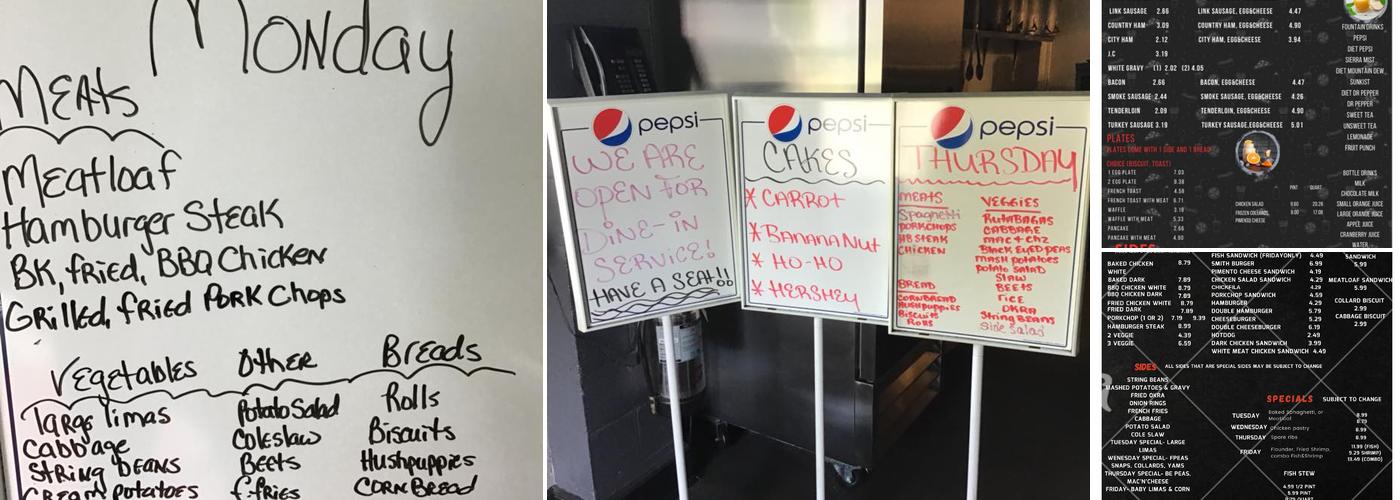 Monday
Meats
Meatloaf
Hamburger Steak
BK, fried, BBQ Chicken
Grilled, fried Pork Chops
Vegetables Other Breads
Large limas Potato Salad Rolls
Cabbage Coleslaw Biscuits
String beans Beets Hushpuppies
Cream Potatoes f.fries Corn Bread
pepsi
WE ARE
OPEN FOR
DINE-IN
SERVICE!
HAVE A SEAT!!
pepsi
CAKES
* CARROT
* BANANA Nut
* HO-HO
* HERSHEY
pepsi
THURSDAY
MEATS
Spaghetti
PORKCHOPS
HB STEAK
CHICKEN
BREAD
CORNBREAD
Hushpuppies
Biscuits
Rolls
VEGGIES
RutaBAGAS
CABBAGE
mac + chz
Black Eyed peas
mash potatoes
potato salad
Slaw
BEETS
rice
OKRA
String Beans
Side Salad
LINK SAUSAGE 2.66 LINK SAUSAGE, EGG&CHEESE 4.47
COUNTRY HAM 3.09 COUNTRY HAM, EGG&CHEESE 4.90
CITY HAM 2.12 CITY HAM, EGG&CHEESE 3.94
J.C 3.19
WHITE GRAVY (1) 2.02 (2) 4.05
BACON 2.66 BACON, EGG&CHEESE 4.47
SMOKE SAUSAGE 2.44 SMOKE SAUSAGE, EGG&CHEESE 4.26
TENDERLOIN 2.09 TENDERLOIN, EGG&CHEESE 4.90
TURKEY SAUSAGE 3.19 TURKEY SAUSAGE, EGG&CHEESE 5.01
PLATES
PLATES COME WITH 1 SIDE AND 1 BREAD
CHOICE (BISCUIT, TOAST)
1 EGG PLATE 7.03
2 EGG PLATE 9.38
FRENCH TOAST 4.50
FRENCH TOAST WITH MEAT 6.71
WAFFLE 3.18
WAFFLE WITH MEAT 5.33
PANCAKE 2.66
PANCAKE WITH MEAT 4.90
SIDES
PINT QUART
CHICKEN SALAD
FROZEN COLLARDS,
PIMENTO CHEESE
FOUNTAIN DRINKS
PEPSI
DIET PEPSI
SIERRA MIST
DIET MOUNTAIN DEW
SUNKIST
DIET DR PEPPER
DR PEPPER
SWEET TEA
UNSWEET TEA
LEMONADE
FRUIT PUNCH
BOTTLE DRINKS
MILK
CHOCOLATE MILK
SMALL ORANGE JUICE
LARGE ORANGE JUICE
APPLE JUICE
CRANBERRY JUICE
WATER
BAKED CHICKEN 8.79
WHITE
BAKED DARK 7.89
BBQ CHICKEN WHITE 8.79
BBQ CHICKEN DARK 7.89
FRIED CHICKEN WHITE 8.79
FRIED DARK 7.89
PORKCHOP (1 OR 2) 7.19 9.39
HAMBURGER STEAK 8.99
2 VEGGIE 4.39
3 VEGGIE 6.59
FISH SANDWICH (FRIDAYONLY) 4.49
SMITH BURGER 6.99
PIMENTO CHEESE SANDWICH 4.19
CHICKEN SALAD SANDWICH 4.29
CHICKFILA 4.29
PORKCHOP SANDWICH 4.59
HAMBURGER 4.29
DOUBLE HAMBURGER 5.79
CHEESEBURGER 5.29
DOUBLE CHEESEBURGER 6.19
HOTDOG 2.49
DARK CHICKEN SANDWICH 3.99
WHITE MEAT CHICKEN SANDWICH 4.49
SANDWICH
5.99
MEATLOAF SANDWICH
5.99
COLLARD BISCUIT
2.99
CABBAGE BISCUIT
2.99
SIDES ALL SIDES THAT ARE SPECIAL SIDES MAY BE SUBJECT TO CHANGE
STRING BEANS
MASHED POTATOES & GRAVY
FRIED OKRA
ONION RINGS
FRENCH FRIES
CABBAGE
POTATO SALAD
COLE SLAW
TUESDAY SPECIAL- LARGE
LIMAS
WENESDAY SPECIAL- FPEAS
SNAPS, COLLARDS, YAMS
THURSDAY SPECIAL- BE PEAS,
MAC'N'CHEESE
FRIDAY- BABY LIMAS & CORN
SPECIALS SUBJECT TO CHANGE
TUESDAY Baked Spahaghetti, or Meatloaf 8.99
WEDNESDAY Chicken pastry 8.99
THURSDAY Spare ribs 8.99
FRIDAY Flounder, Fried Shrimp, combo Fish&Shrimp
11.99 (FISH)
9.29 (SHRIMP)
13.49 (COMBO)
FISH STEW
4.99 1/2 PINT
5.99 PINT